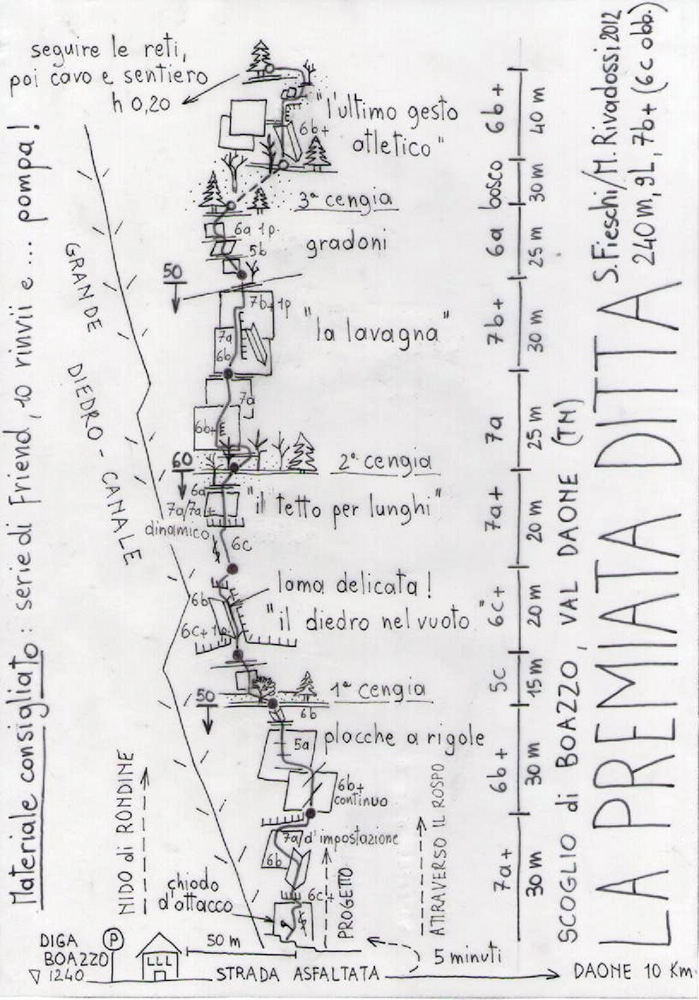 seguire le reti,
poi cavo e sentiero
h 0,20
"l'ultimo gesto
atletico"
6b+
3ª cengia
6a 1p.
5b
gradoni
50
7b+ 1p
7a
6b
"la lavagna"
7a
6b+
60
2ª cengia
6a
7a/7a+
dinamico
"il tetto per lunghi"
6c
lama delicata!
6b
"il diedro nel vuoto"
6c+ 1p
1ª cengia
50
6b
placche a rigole
5a
6b+
continuo
7a/d'impostazione
6b
6c+
chiodo
d'attacco
PROGETTO
ATTRAVERSO IL ROSPO
NIDO di RONDINE
GRANDE
DIEDRO-CANALE
Materiale consigliato: serie di Friend, 10 rinvii e... pompa!
6b+
40 m
bosco
30 m
6a
25 m
7b+
30 m
7a
25 m
7a+
20 m
6c+
20 m
5c
15 m
6b+
30 m
7a+
30 m
SCOGLIO di BOAZZO, VAL DAONE (TN)
LA PREMIATA DITTA
S. Fieschi/M. Rivadossi 2012
240 m, 9L, 7b+ (6c obb.)
DIGA
BOAZZO
▽ 1240
P
50 m
5 minuti
STRADA ASFALTATA
DAONE 10 Km.